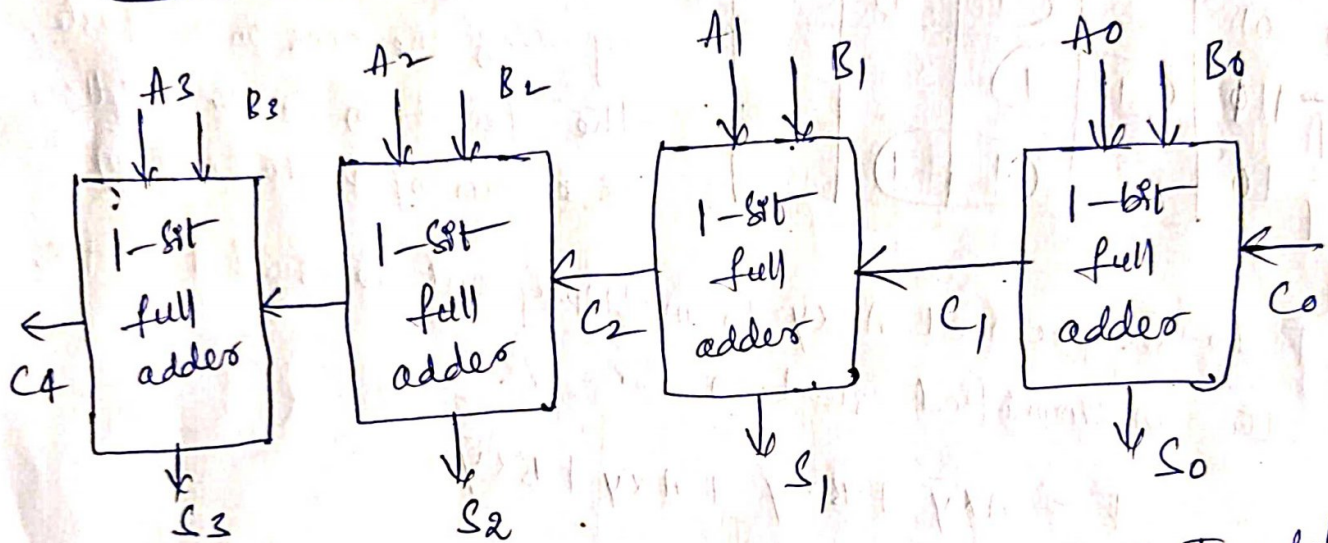 A3 B3 A2 B2 A1 B1 A0 B0
1-bit full adder
1-bit full adder
1-bit full adder
1-bit full adder
C4 C2 C1 C0
S3 S2 S1 S0